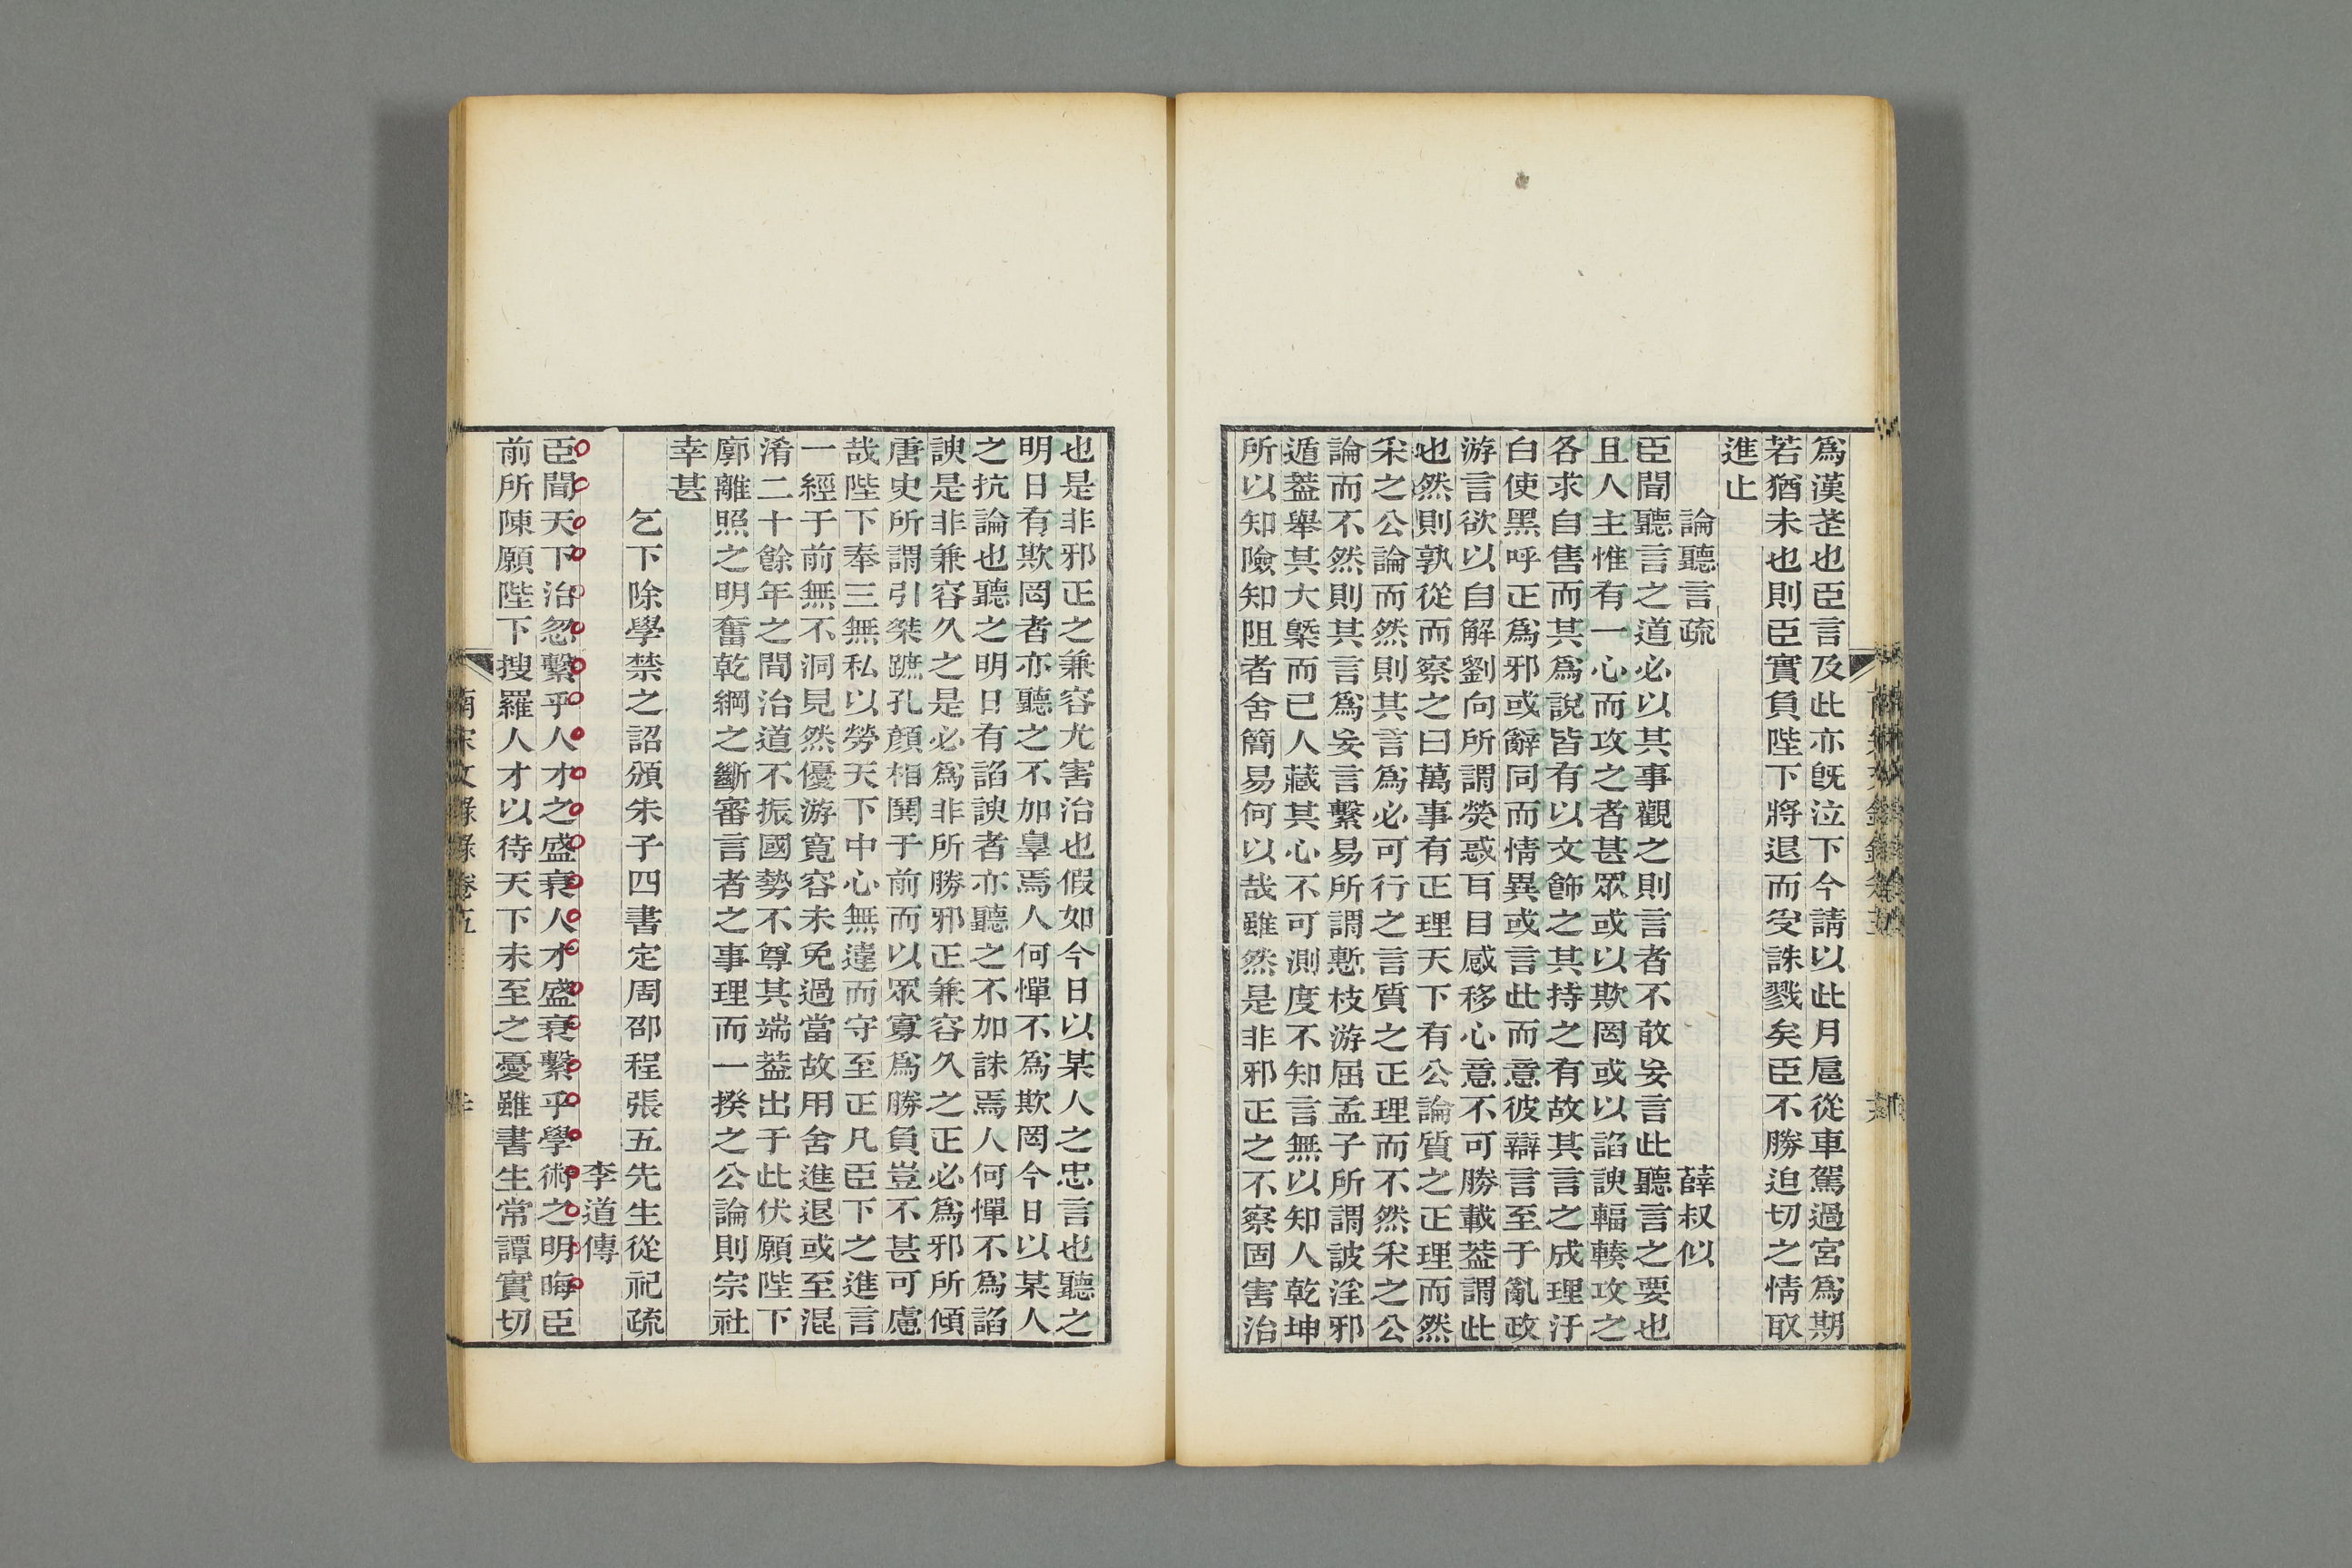 爲漢荏也臣言及此亦旣泣下今請以此月扈從車駕過宮爲期
若猶未也則臣實負陛下將退而受誅戮矣臣不勝迫切之情取
進止
論聽言疏 薛叔似
臣聞聽言之道必以其事觀之則言者不敢妄言此聽言之要也
且人主惟有一心而攻之者甚眾或以欺罔或以諂諛輻輳攻之
各求自售而其爲說皆有以文飾之其持之有故其言之成理汙
白使黑呼正爲邪或辭同而情異或言此而意彼辯言至于亂政
游言欲以自解劉向所謂熒惑耳目感移心意不可勝載葢謂此
也然則孰從而察之曰萬事有正理天下有公論質之正理而然
釆之公論而然則其言爲必可行之言質之正理而不然釆之公
論而不然則其言爲妄言繫易所謂慙枝游屈孟子所謂詖淫邪
遁葢舉其大槩而已人藏其心不可測度不知言無以知人乾坤
所以知險知阻者舍簡易何以哉雖然是非邪正之不察固害治
也是非邪正之兼容尤害治也假如今日以某人之忠言也聽之
明日有欺罔者亦聽之不加辠焉人何憚不爲欺罔今日以某人
之抗論也聽之明日有諂諛者亦聽之不加誅焉人何憚不爲諂
諛是非兼容久之是必爲非所勝邪正兼容久之正必爲邪所傾
唐史所謂引桀蹠孔顏相鬨于前而以眾寡爲勝負豈不甚可慮
哉陛下奉三無私以勞天下中心無違而守至正凡臣下之進言
一經于前無不洞見然優游寬容未免過當故用舍進退或至混
淆二十餘年之間治道不振國勢不尊其端葢出于此伏願陛下
廓離照之明奮乾綱之斷審言者之事理而一揆之公論則宗社
幸甚
乞下除學禁之詔頒朱子四書定周邵程張五先生從祀疏
李道傳
臣聞天下治忽繫乎人才之盛衰人才盛衰繫乎學術之明晦臣
前所陳願陛下搜羅人才以待天下未至之憂雖書生常譚實切
南宋文錄錄卷五